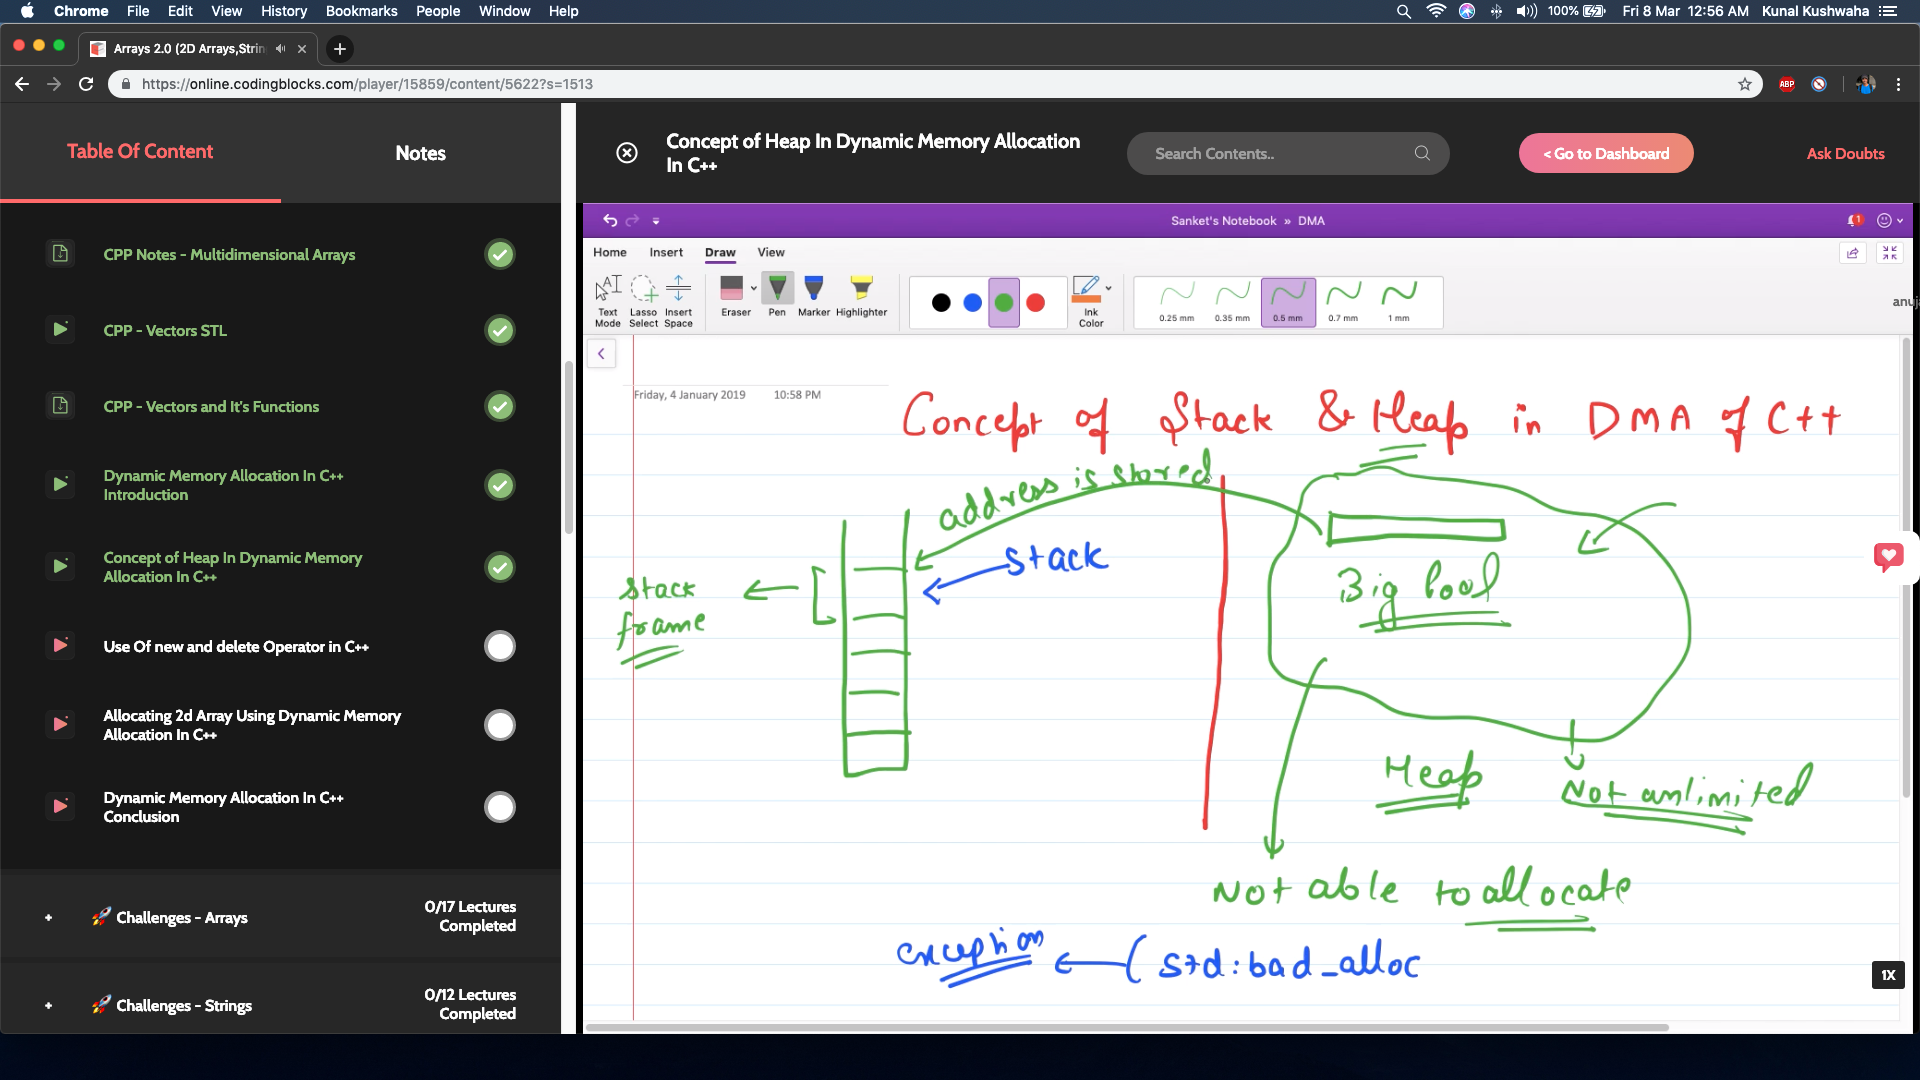 Chrome File Edit View History Bookmarks People Window Help 100% Fri 8 Mar 12:56 AM Kunal Kushwaha
Arrays 2.0 (2D Arrays,Strin
https://online.codingblocks.com/player/15859/content/5622?s=1513
ABP
Table Of Content
Notes
CPP Notes - Multidimensional Arrays
CPP - Vectors STL
CPP - Vectors and It's Functions
Dynamic Memory Allocation In C++
Introduction
Concept of Heap In Dynamic Memory
Allocation In C++
Use Of new and delete Operator in C++
Allocating 2d Array Using Dynamic Memory
Allocation In C++
Dynamic Memory Allocation In C++
Conclusion
+ 🚀 Challenges - Arrays
0/17 Lectures
Completed
+ 🚀 Challenges - Strings
0/12 Lectures
Completed
Concept of Heap In Dynamic Memory Allocation
In C++
Search Contents..
< Go to Dashboard
Ask Doubts
Sanket's Notebook » DMA
1
Home Insert Draw View
Text
Mode
Lasso
Select
Insert
Space
Eraser
Pen
Marker
Highlighter
Ink
Color
0.25 mm
0.35 mm
0.5 mm
0.7 mm
1 mm
anuj
Friday, 4 January 2019 10:58 PM
Concept of Stack & Heap in DMA of C++
address is stored
stack
stack
frame
Big Pool
Heap
Not unlimited
Not able to allocate
exception
( std:bad_alloc
1X